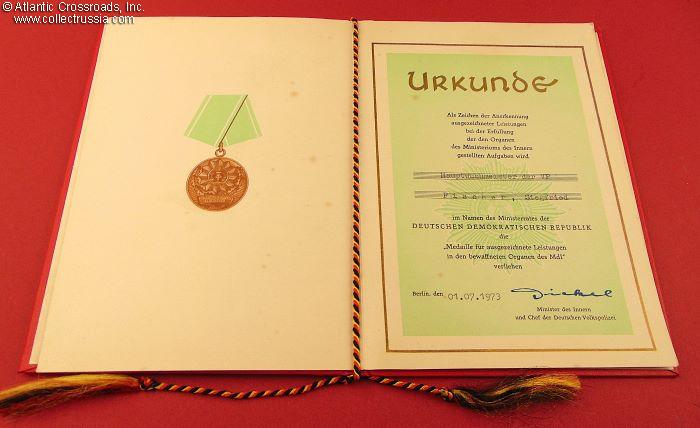 © Atlantic Crossroads, Inc.
www.collectrussia.com
URKUNDE
Als Zeichen der Anerkennung
ausgezeichneter Leistungen
bei der Erfüllung
der den Organen
des Ministeriums des Innern
gestellten Aufgaben wird
Hauptwachtmeister der VP
Siegfried
im Namen des Ministerrates der
DEUTSCHEN DEMOKRATISCHEN REPUBLIK
die
„Medaille für ausgezeichnete Leistungen
in den bewaffneten Organen des MdI“
verliehen
Berlin, den 01.07.1973 Dickel
Minister des Innern
und Chef der Deutschen Volkspolizei